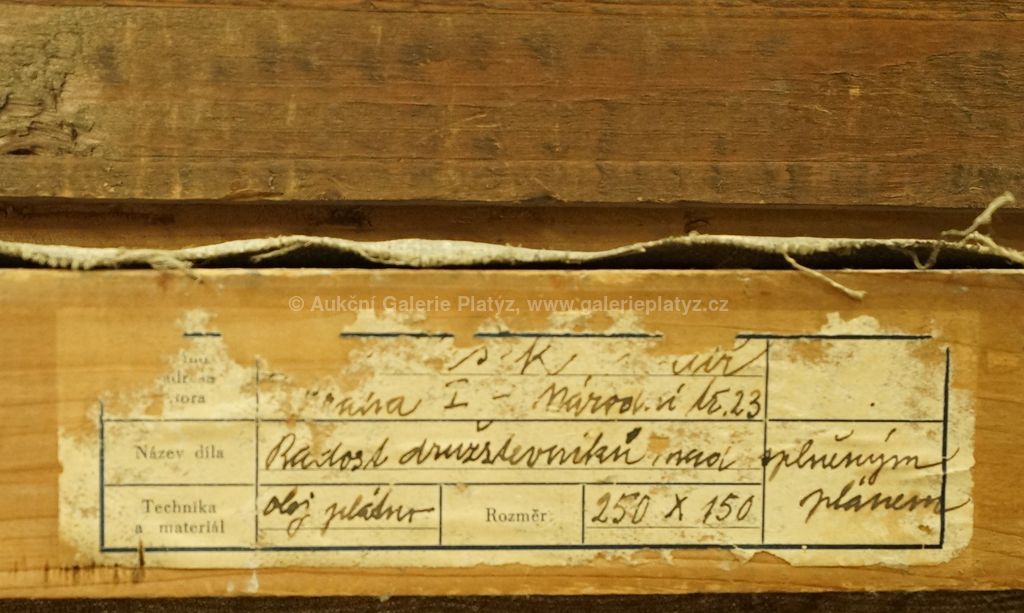 © Aukční Galerie Platýz, www.galerieplatyz.cz
adresa
I - Národní tř. 23
Název díla Radost družstevníků nad splněným
plánem
Technika
a materiál olej plátno Rozměr 250 X 150